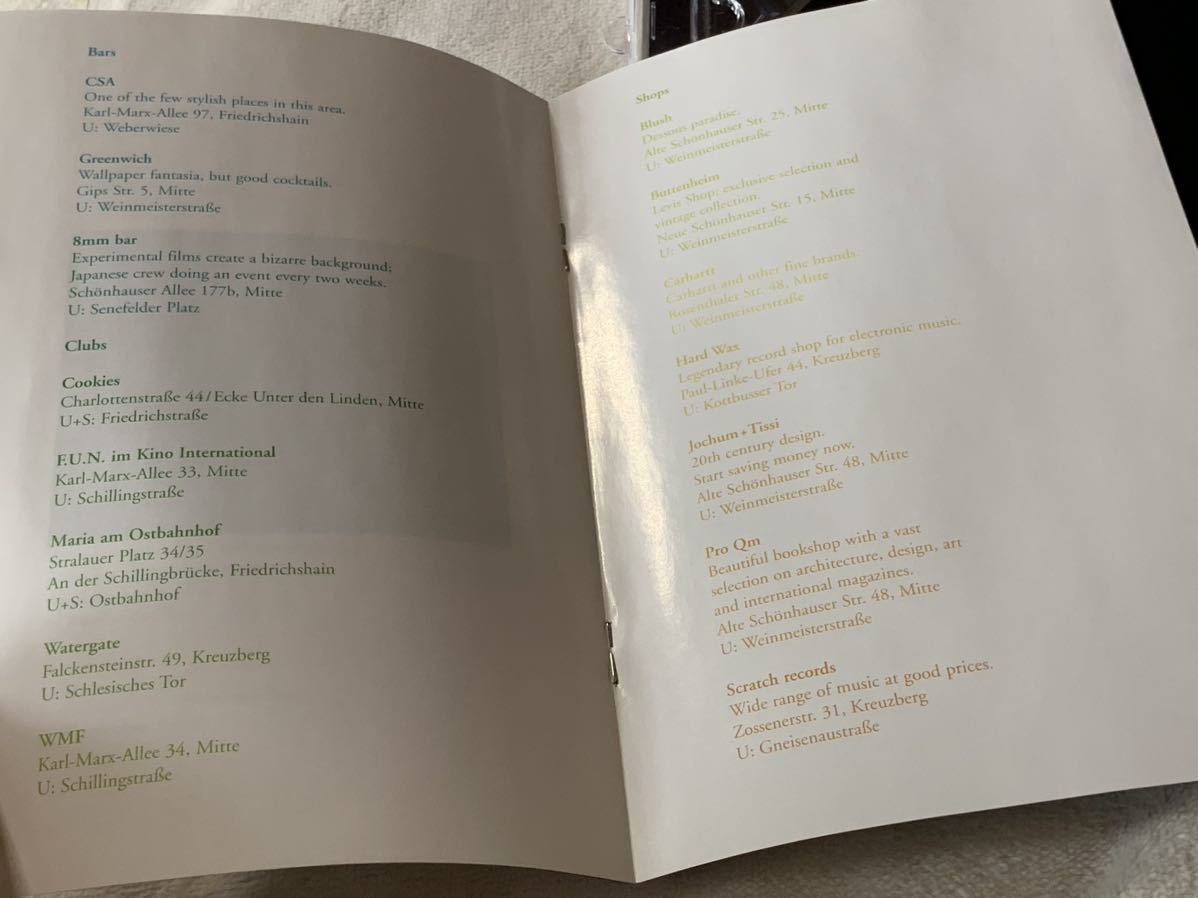 Bars
CSA
One of the few stylish places in this area.
Karl-Marx-Allee 97, Friedrichshain
U: Weberwiese
Greenwich
Wallpaper fantasia, but good cocktails.
Gips Str. 5, Mitte
U: Weinmeisterstraße
8mm bar
Experimental films create a bizarre background;
Japanese crew doing an event every two weeks.
Schönhauser Allee 177b, Mitte
U: Senefelder Platz
Clubs
Cookies
Charlottenstraße 44/Ecke Unter den Linden, Mitte
U+S: Friedrichstraße
F.U.N. im Kino International
Karl-Marx-Allee 33, Mitte
U: Schillingstraße
Maria am Ostbahnhof
Stralauer Platz 34/35
An der Schillingbrücke, Friedrichshain
U+S: Ostbahnhof
Watergate
Falckensteinstr. 49, Kreuzberg
U: Schlesisches Tor
WMF
Karl-Marx-Allee 34, Mitte
U: Schillingstraße
Shops
Blush
Dessous paradise.
Alte Schönhauser Str. 25, Mitte
U: Weinmeisterstraße
Buttenheim
Levis Shop; exclusive selection and
vintage collection.
Neue Schönhauser Str. 15, Mitte
U: Weinmeisterstraße
Carhartt
Carhartt and other fine brands.
Rosenthaler Str. 48, Mitte
U: Weinmeisterstraße
Hard Wax
Legendary record shop for electronic music.
Paul-Linke-Ufer 44, Kreuzberg
U: Kottbusser Tor
Jochum+Tissi
20th century design.
Start saving money now.
Alte Schönhauser Str. 48, Mitte
U: Weinmeisterstraße
Pro Qm
Beautiful bookshop with a vast
selection on architecture, design, art
and international magazines.
Alte Schönhauser Str. 48, Mitte
U: Weinmeisterstraße
Scratch records
Wide range of music at good prices.
Zossenerstr. 31, Kreuzberg
U: Gneisenaustraße